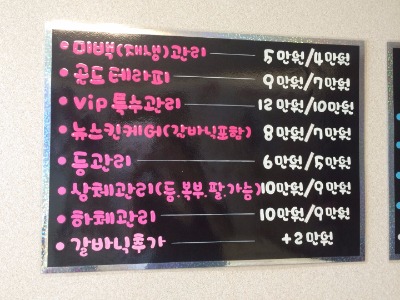 미백(재생)관리 5만원/4만원
골드테라피 9만원/7만원
vip 특수관리 12만원/10만원
뉴스킨케어(갈바닉포함) 8만원/7만원
등관리 6만원/5만원
상체관리(등.복부.팔.가능) 10만원/9만원
하체관리 10만원/9만원
갈바닉추가 +2만원